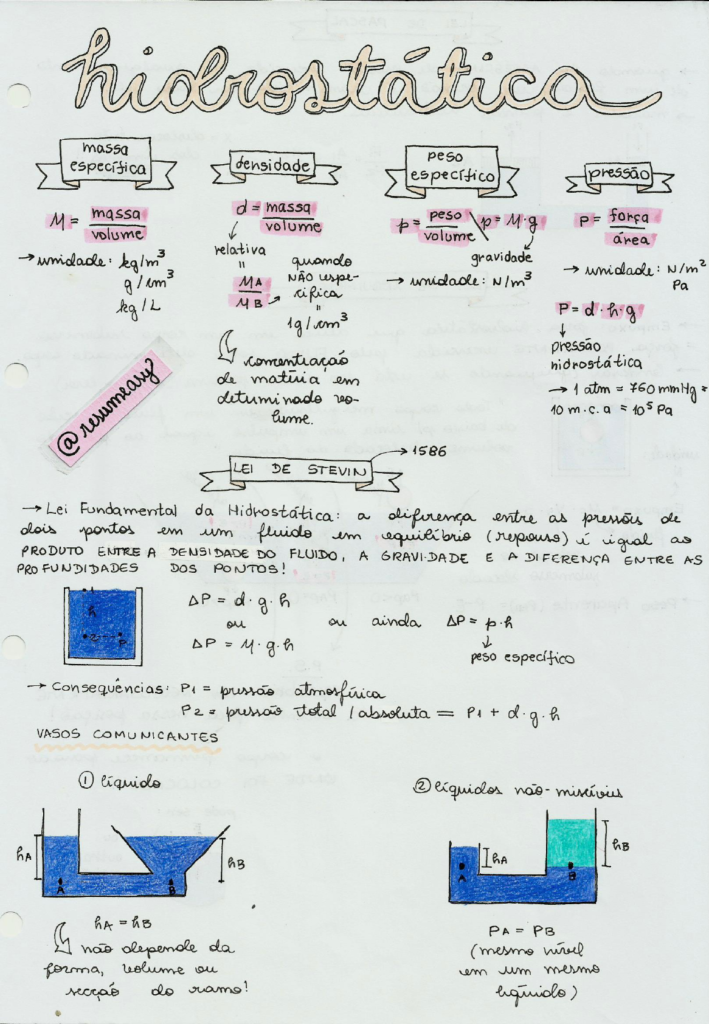 hidrostática
massa
específica
M = massa
volume
→ unidade: kg/m³
g/cm³
kg/L
densidade
d = massa
volume
relativa
"
MA
MB
quando
NÃO espe-
cifica
"
1g/cm³
concentração
de matéria em
determinado vo-
lume.
peso
específico
p = peso
volume
p = M·g
gravidade
→ unidade: N/m³
pressão
P = força
área
→ unidade: N/m²
Pa
P = d·h·g
pressão
hidrostática
→ 1 atm = 760 mmHg =
10 m.c.a = 10⁵ Pa
@resumeasy
LEI DE STEVIN → 1586
→ Lei Fundamental da Hidrostática: a diferença entre as pressões de
dois pontos em um fluido em equilíbrio (repouso) é igual ao
PRODUTO ENTRE A DENSIDADE DO FLUIDO, A GRAVIDADE E A DIFERENÇA ENTRE AS
PROFUNDIDADES DOS PONTOS!
1
h
2
P
ΔP = d·g·h
ou
ΔP = M·g·h
ou ainda ΔP = p·h
peso específico
→ Consequências: P1 = pressão atmosférica
P2 = pressão total/absoluta = P1 + d·g·h
VASOS COMUNICANTES
① líquido
hA
A
B
hB
hA = hB
não depende da
forma, volume ou
secção do ramo!
② líquidos não-miscíveis
A
hA
B
hB
PA = PB
(mesmo nível
em um mesmo
líquido)